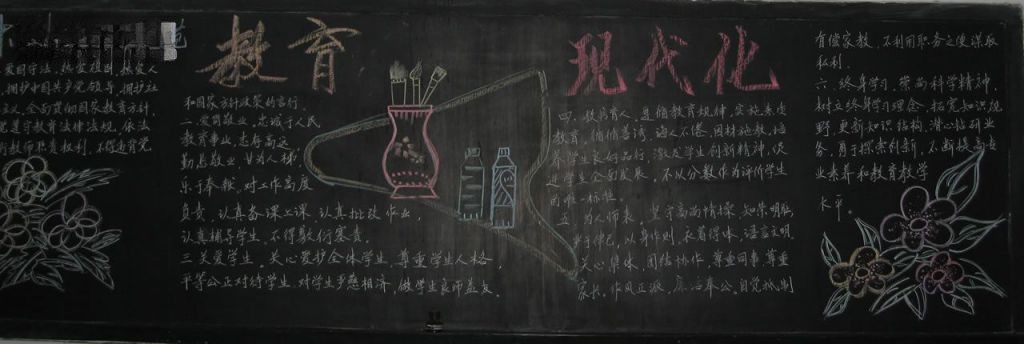 教育
现代化
爱国守法，热爱祖国，热爱人
，拥护中国共产党领导，拥护社
义，全面贯彻国家教育方针，
觉遵守教育法律法规，依法
行教师职责权利，不得违背党
和国家方针政策的言行。
二、爱岗敬业，忠诚于人民
教育事业，志存高远，
勤恳敬业，甘为人梯，
乐于奉献，对工作高度
负责，认真备课上课，认真批改作业，
认真辅导学生，不得敷衍塞责。
三、关爱学生，关心爱护全体学生，尊重学生人格，
平等公正对待学生，对学生严慈相济，做学生良师益友。
四、教书育人，遵循教育规律，实施素质
教育，循循善诱，诲人不倦，因材施教，培
养学生良好品行，激发学生创新精神，促
进学生全面发展，不以分数作为评价学生
的唯一标准。
五、为人师表，坚守高尚情操，知荣明耻，
严于律己，以身作则，衣着得体，语言文明，
关心集体，团结协作，尊重同事，尊重
家长，作风正派，廉洁奉公，自觉抵制
有偿家教，不利用职务之便谋取
私利。
六、终身学习，崇尚科学精神，
树立终身学习理念，拓宽知识视
野，更新知识结构，潜心钻研业
务，勇于探索创新，不断提高专
业素养和教育教学
水平。